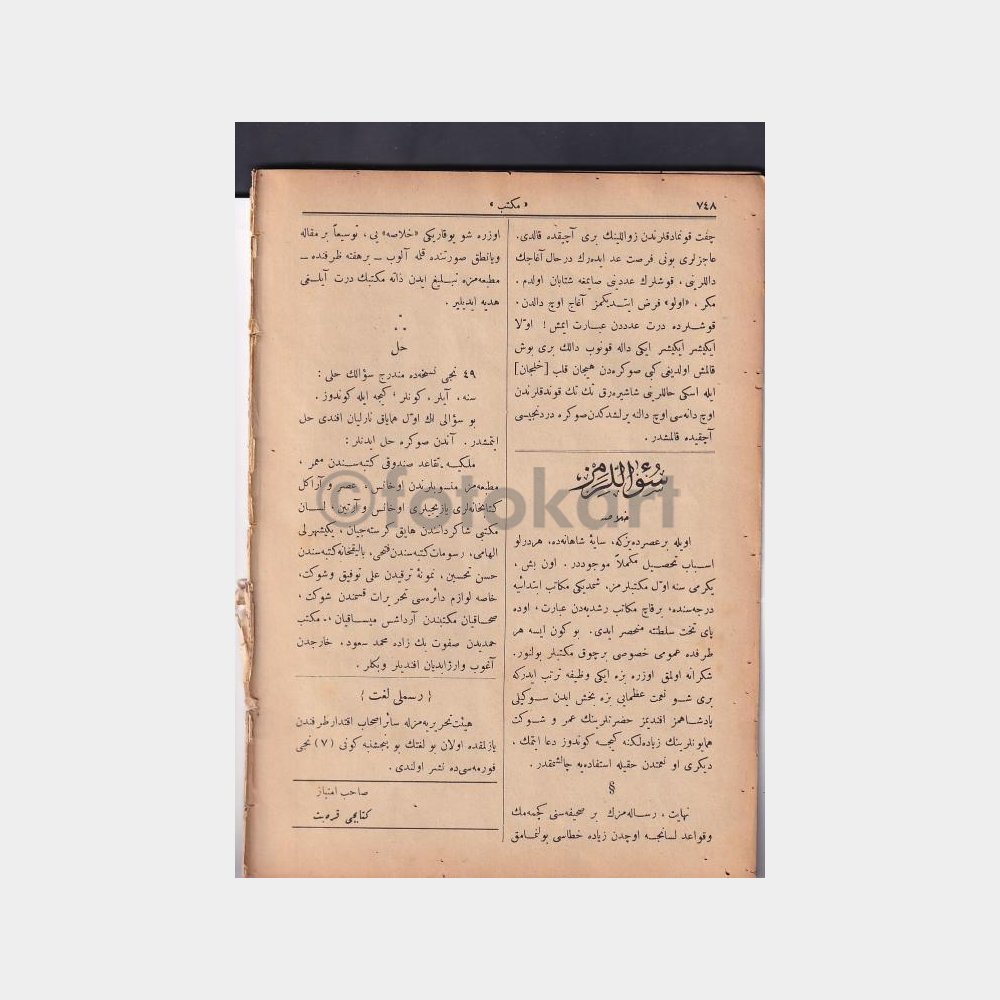 ٧٤٨
« مكتب »
چفت قونمادقلرندن زواللينك برى آچيقده قالدى .
عاجزلرى بونى فرصت عد ايدەرك درحال آغاجك
داللرينى ، قوشلرك عددينى صايمغه شتابان اولدم .
مكر ، «اولو» فرض ايتديكمز آغاج اوچ دالدن ،
قوشلرده درت عدددن عبارت ايمش ! اوّلا
ايكيشر ايكيشر ايكى داله قونوب دالك برى بوش
قالمش اولديغى كبى صوكرەدن هيجان قلب [خلجان]
ايله اسكى حاللرينى شاشيرەرق تك تك قوندقلرندن
اوچ دانەسى اوچ دالنه يرلشدكدن صوكره دردنجيسى
آچيقده قالمشدر .
سؤاللرمز
خلاصه
اويله بر عصرده‌يزكه ، سايۀ شاهانه‌ده ، هردرلو
اسباب تحصيل مكملاً موجوددر . اون بش ،
يكرمى سنه اوّل مكتبلرمز ، شمديكى مكاتب ابتدائيه
درجه‌سنده ، برقاچ مكاتب رشديه‌دن عبارت ، اوده
پاى تخت سلطنته منحصر ايدى . بو كون ايسه هر
طرفده عمومى خصوصى برچوق مكتبلر بولنور .
شكرانه اولمق اوزره بزه ايكى وظيفه ترتب ايدركه
برى شو نعمت عظمايى بزه بخش ايدن سوكيلى
پادشاهمز افنديمز حضرتلرينك عمر و شوكت
همايونلرينك زياده‌لكنه كيجه كوندوز دعا ايتمك ،
ديكرى او نعمتدن حقيله استفاده‌يه چالشمقدر .
§
نهايت ، رساله‌مزك بر صحيفه‌سنى كچمه‌مك
وقواعد لسانجه اوچدن زياده خطاسى بولنمامق
اوزره شو يوقاريكى «خلاصه» يى ، توسيعاً بر مقاله
ويا نطق صورتنده قلمه آلوب ــ بر هفته ظرفنده ــ
مطبعه‌مزه تبليغ ايدن ذاته مكتبك درت آيلغى
هديه ايديلير .
حل
٤٩ نجى نسخه‌ده مندرج سؤالك حلى :
سنه ، آيلر ، كونلر ، كيجه ايله كوندوز .
بو سؤالى اك اوّل هاياق نارليان افندى حل
ايتمشدر . آندن صوكره حل ايدنلر :
ملكيه تقاعد صندوقى كتبه‌سندن معمر ،
مطبعه‌مز منسوبلرندن اوخانس ، عصر و آراكل
كتابخانه‌لرى يازيجيلرى اوخانس و آرتين ، لسان
مكتبى شاكرداننددن هايق كرسته‌جيان ، يكيشهرلى
الهامى ، رسومات كتبه‌سندن فتحى ، باليقخانه كتبه‌سندن
حسن تحسين ، نمونۀ ترقيدن على توفيق وشوكت ،
خاصه لوازم دائره‌سى تحريرات قسمندن شوكت ،
صحاقيان مكتبندن آرداشس ميساقيان ، مكتب
حميديدن صفوت بك زاده محمد سعود ، خارجدن
آغوب وارژابديان افنديلر وبكلر .
{ رسملى لغت }
هيئت تحريريه‌مزله سائر اصحاب اقتدار طرفندن
يازلمقده اولان بو لغتك بو پنجشنبه كونى (٧) نجى
فورمه‌سى ده نشر اولندى .
صاحب امتياز
كتابجى قره‌بت
©fotokart